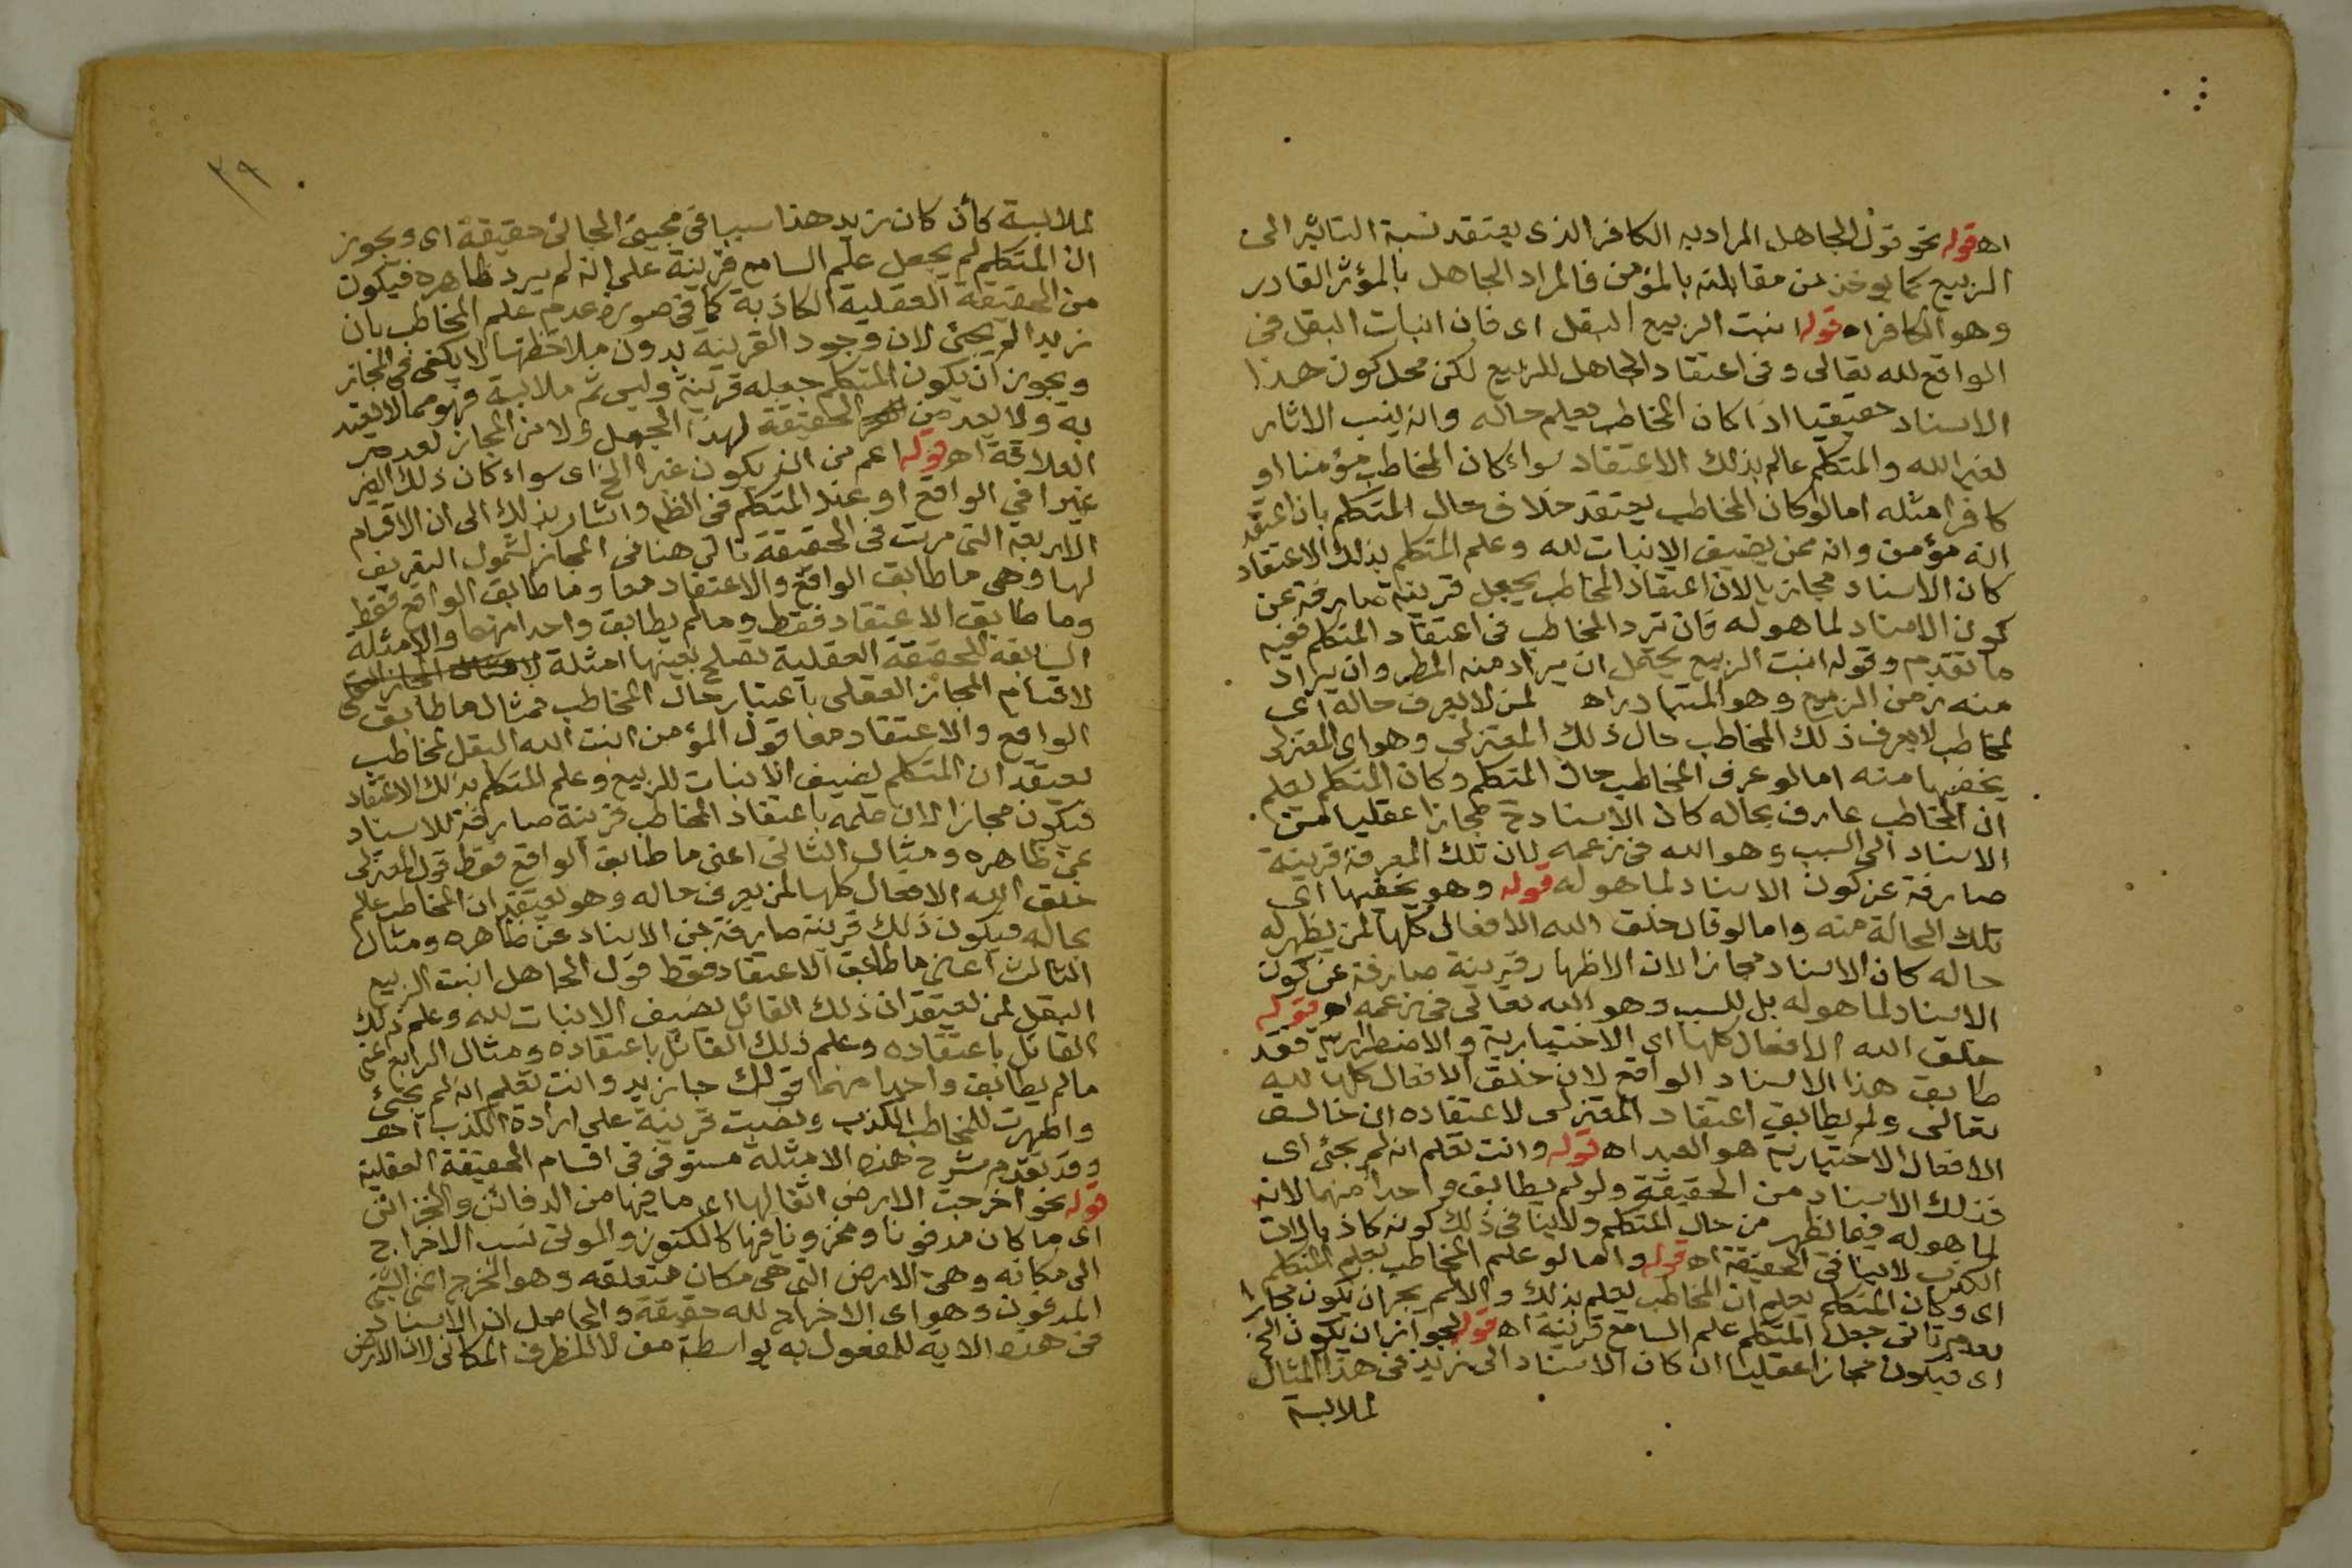 اه قوله نحو قول الجاهل المراد به الكافر الذى يعتقد نسبة التاثير الى
الربيع كما يوخذ من مقابلته بالمؤمن فالمراد الجاهل بالمؤثر القادر
وهو الكافر اه قوله انبت الربيع البقل اى فان انبات البقل فى
الواقع لله تعالى وفى اعتقاد الجاهل للربيع لكن محل كون هذا
الاسناد حقيقيا اذا كان المخاطب يعلم حاله وانه ينسب الاثار
لغير الله والمتكلم عالم بذلك الاعتقاد سواء كان المخاطب مؤمنا او
كافرا مثله امالو كان المخاطب يعتقد خلاف حال المتكلم بان اعتقد
انه مؤمن وانه ممن يضيف الانبات لله وعلم المتكلم بذلك الاعتقاد
كان الاسناد مجازيا لان اعتقاد المخاطب يجعل قرينة صارفة عن
كون الاسناد لما هو له فان تردد المخاطب فى اعتقاد المتكلم ففيه
ما تقدم وقوله انبت الربيع يحتمل ان يراد منه المطر وان يراد
منه زمن الربيع وهو المتبادر اه لمن لا يعرف حاله اى
لمخاطب لا يعرف ذلك المخاطب حال ذلك المعتزلى وهو اى المعتزلى
يخفيها منه امالو عرف المخاطب حال المتكلم وكان المتكلم يعلم
ان المخاطب عارف بحاله كان الاسناد ح مجازا عقليا من
الاسناد الى السبب وهو الله فى زعمه لان تلك المعرفة قرينة
صارفة عن كون الاسناد لما هو له قوله وهو يخفيها اى
تلك الحالة منه وامالو قال خلق الله الافعال كلها لمن يظهر له
حاله كان الاسناد مجازا لان الاظهار قرينة صارفة عن كون
الاسناد لما هو له بل للسبب وهو الله تعالى فى زعمه اه قوله
خلق الله الافعال كلها اى الاختيارية والاضطرارية فقد
طابق هذا الاسناد الواقع لان خلق الافعال كلها لله
تعالى ولم يطابق اعتقاد المعتزلى لاعتقاده ان خالق
الافعال الاختيارية هو العبد اه قوله وانت تعلم انه لم يجئ اى
فذلك الاسناد من الحقيقة ولو لم يطابق واحدا منهما لانه
لما هو له فيما يظهر من حال المتكلم ولا ينافى ذلك كونه كاذبا لان
الكذب لا ينافى الحقيقة اه قوله وامالو علم المخاطب بعلم المتكلم
اى وكان المتكلم يعلم ان المخاطب يعلم بذلك والا لم يجز ان يكون مجازا
لعدم تاتى جعل المتكلم علم السامع قرينة اه قوله لجواز ان يكون الخ
اى فيكون مجازا عقليا ان كان الاسناد الى زيد فى هذا المثال
لملابسة
لملابسة كأن كان زيد هذا سببا فى مجيئ الجائى حقيقة اى ويجوز
ان المتكلم لم يجعل علم السامع قرينة على انه لم يرد ظاهره فيكون
من الحقيقة العقلية الكاذبة كما فى صورة عدم علم المخاطب بان
زيدا لم يجئ لان وجود القرينة بدون ملاحظتها لا يكفى فى المجاز
ويجوز ان يكون المتكلم جعله قرينة وليس ثم ملابسة فهو مما لا يعتد
به ولا يعد من الحقيقة لهذا الجعل ولا من المجاز لعدم
العلاقة اه قوله اعم من ان يكون غيرا الخ اى سواء كان ذلك الغير
غيرا فى الواقع او عند المتكلم فى الظم واشار بذلك الى ان الاقسام
الاربعة التى مرت فى الحقيقة تاتى هنا فى المجاز لشمول التعريف
لها وهى ما طابق الواقع والاعتقاد معا وما طابق الواقع فقط
وما طابق الاعتقاد فقط وما لم يطابق واحدا منهما والامثلة
السابقة للحقيقة العقلية تصلح بعينها امثلة
لاقسام المجاز العقلى باعتبار حال المخاطب فمثال ما طابق
الواقع والاعتقاد معا قول المؤمن انبت الله البقل لمخاطب
يعتقد ان المتكلم يضيف الانبات للربيع وعلم المتكلم بذلك الاعتقاد
فيكون مجازا لان علمه باعتقاد المخاطب قرينة صارفة للاسناد
عن ظاهره ومثال الثانى اعنى ما طابق الواقع فقط قول المعتزلى
خلق الله الافعال كلها لمن يعرف حاله وهو يعتقد ان المخاطب عالم
بحاله فيكون ذلك قرينة صارفة عن الاسناد عن ظاهره ومثال
الثالث اعنى ما طابق الاعتقاد فقط قول الجاهل انبت الربيع
البقل لمن يعتقد ان ذلك القائل يضيف الانبات لله وعلم ذلك
القائل باعتقاده وعلم ذلك القائل باعتقاده ومثال الرابع اعنى
ما لم يطابق واحدا منهما قولك جا زيد وانت تعلم انه لم يجئ
واظهرت للمخاطب الكذب ونصبت قرينة على ارادة الكذب اه
وقد تقدم شرح هذه الامثلة مستوفى فى اقسام الحقيقة العقلية
قوله نحو اخرجت الارض اثقالها اى ما فيها من الدفائن والخزائن
اى ما كان مدفونا ومخزونا فيها كالكنوز والموتى نسب الاخراج
الى مكانه وهى الارض التى هى مكان متعلقه وهو المخرج اعنى الشئ
المدفون وهو اى الاخراج لله حقيقة والحاصل ان الاسناد
فى هذه الاية للمفعول به بواسطة من لا للظرف المكانى لان الارض
٣٩